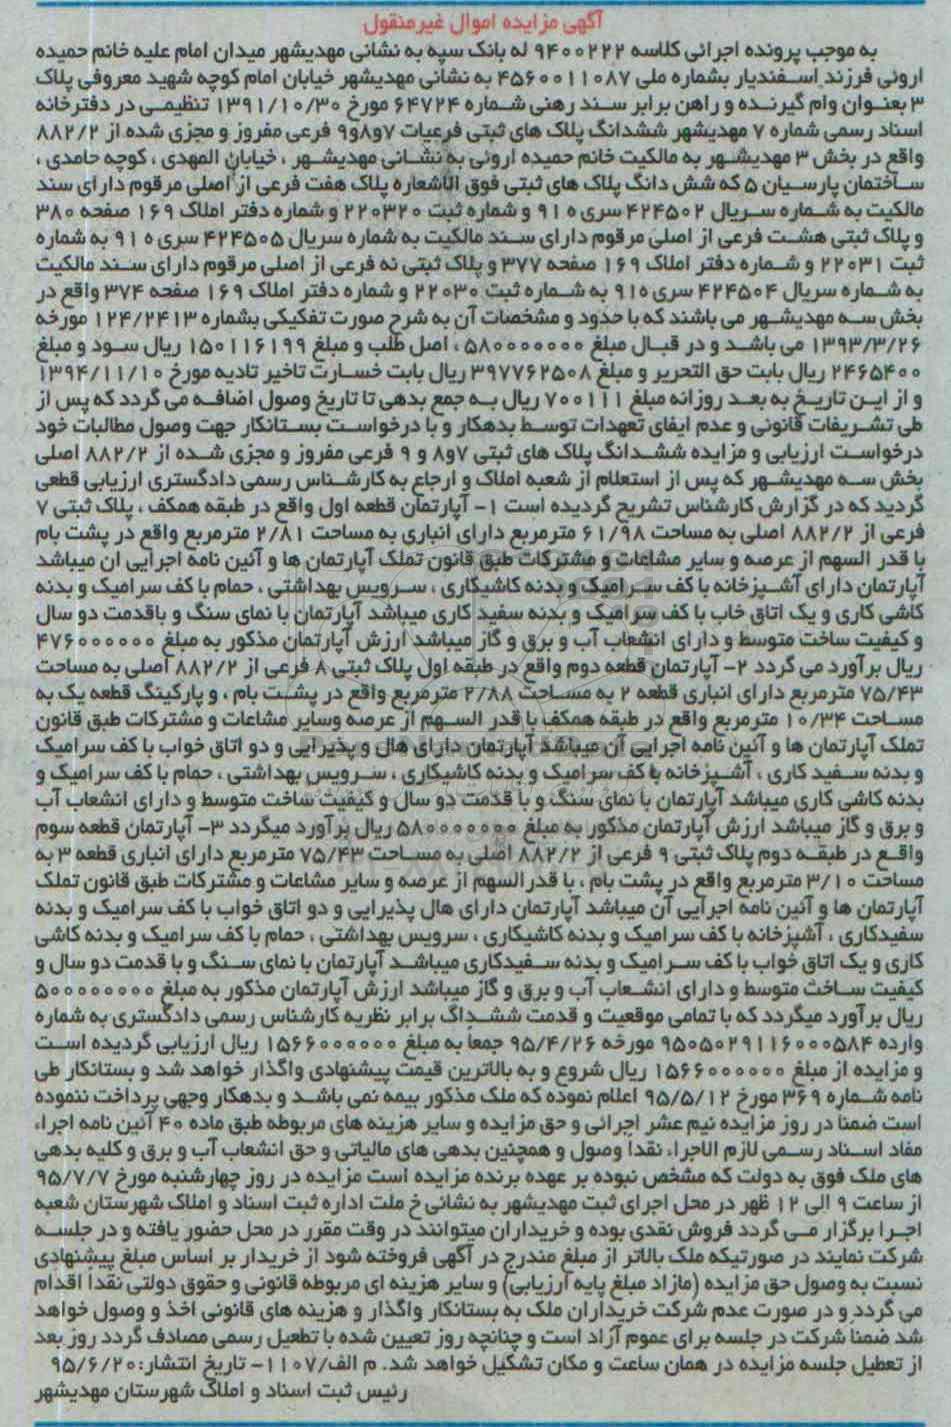 آگهی مزایده اموال غیرمنقول
به موجب پرونده اجرائی کلاسه ۹۴۰۰۲۲۲ له بانک سپه به نشانی مهدیشهر میدان امام علیه خانم حمیده
ارونی فرزند اسفندیار بشماره ملی ۴۵۶۰۰۱۱۰۸۷ به نشانی مهدیشهر خیابان امام کوچه شهید معروفی پلاک
۳ بعنوان وام گیرنده و راهن برابر سند رهنی شماره ۶۴۷۲۴ مورخ ۱۳۹۱/۱۰/۳۰ تنظیمی در دفترخانه
اسناد رسمی شماره ۷ مهدیشهر ششدانگ پلاک های ثبتی فرعیات ۷و۸و۹ فرعی مفروز و مجزی شده از ۸۸۲/۲
واقع در بخش ۳ مهدیشهر به مالکیت خانم حمیده ارونی به نشانی مهدیشهر ، خیابان المهدی ، کوچه حامدی ،
ساختمان پارسیان ۵ که شش دانگ پلاک های ثبتی فوق الاشعاره پلاک هفت فرعی از اصلی مرقوم دارای سند
مالکیت به شماره سریال ۴۲۴۵۰۲ سری ه ۹۱ و شماره ثبت ۲۲۰۳۲۰ و شماره دفتر املاک ۱۶۹ صفحه ۳۸۰
و پلاک ثبتی هشت فرعی از اصلی مرقوم دارای سند مالکیت به شماره سریال ۴۲۴۵۰۵ سری ه ۹۱ به شماره
ثبت ۲۲۰۳۱ و شماره دفتر املاک ۱۶۹ صفحه ۳۷۷ و پلاک ثبتی نه فرعی از اصلی مرقوم دارای سند مالکیت
به شماره سریال ۴۲۴۵۰۴ سری ه۹۱ به شماره ثبت ۲۲۰۳۰ و شماره دفتر املاک ۱۶۹ صفحه ۳۷۴ واقع در
بخش سه مهدیشهر می باشند که با حدود و مشخصات آن به شرح صورت تفکیکی بشماره ۱۲۴/۲۴۱۳ مورخه
۱۳۹۳/۳/۲۶ می باشد و در قبال مبلغ ۵۸۰۰۰۰۰۰۰ ، اصل طلب و مبلغ ۱۵۰۱۱۶۱۹۹ ریال سود و مبلغ
۲۴۶۵۴۰۰ ریال بابت حق التحریر و مبلغ ۳۹۷۷۶۲۵۰۸ ریال بابت خسارت تاخیر تادیه مورخ ۱۳۹۴/۱۱/۱۰
و از این تاریخ به بعد روزانه مبلغ ۷۰۰۱۱۱ ریال به جمع بدهی تا تاریخ وصول اضافه می گردد که پس از
طی تشریفات قانونی و عدم ایفای تعهدات توسط بدهکار و با درخواست بستانکار جهت وصول مطالبات خود
درخواست ارزیابی و مزایده ششدانگ پلاک های ثبتی ۷و۸ و ۹ فرعی مفروز و مجزی شده از ۸۸۲/۲ اصلی
بخش سه مهدیشهر که پس از استعلام از شعبه املاک و ارجاع به کارشناس رسمی دادگستری ارزیابی قطعی
گردید که در گزارش کارشناس تشریح گردیده است ۱- آپارتمان قطعه اول واقع در طبقه همکف ، پلاک ثبتی ۷
فرعی از ۸۸۲/۲ اصلی به مساحت ۶۱/۹۸ مترمربع دارای انباری به مساحت ۲/۸۱ مترمربع واقع در پشت بام
با قدر السهم از عرصه و سایر مشاعات و مشترکات طبق قانون تملک آپارتمان ها و آئین نامه اجرایی ان میباشد
آپارتمان دارای آشپزخانه با کف سرامیک و بدنه کاشیکاری ، سرویس بهداشتی ، حمام با کف سرامیک و بدنه
کاشی کاری و یک اتاق خاب با کف سرامیک و بدنه سفید کاری میباشد آپارتمان با نمای سنگ و باقدمت دو سال
و کیفیت ساخت متوسط و دارای انشعاب آب و برق و گاز میباشد ارزش آپارتمان مذکور به مبلغ ۴۷۶۰۰۰۰۰۰
ریال برآورد می گردد ۲- آپارتمان قطعه دوم واقع در طبقه اول پلاک ثبتی ۸ فرعی از ۸۸۲/۲ اصلی به مساحت
۷۵/۴۳ مترمربع دارای انباری قطعه ۲ به مساحت ۲/۸۸ مترمربع واقع در پشت بام ، و پارکینگ قطعه یک به
مساحت ۱۰/۳۴ مترمربع واقع در طبقه همکف با قدر السهم از عرصه وسایر مشاعات و مشترکات طبق قانون
تملک آپارتمان ها و آئین نامه اجرایی آن میباشد آپارتمان دارای هال و پذیرایی و دو اتاق خواب با کف سرامیک
و بدنه سفید کاری ، آشپزخانه با کف سرامیک و بدنه کاشیکاری ، سرویس بهداشتی ، حمام با کف سرامیک و
بدنه کاشی کاری میباشد آپارتمان با نمای سنگ و با قدمت دو سال و کیفیت ساخت متوسط و دارای انشعاب آب
و برق و گاز میباشد ارزش آپارتمان مذکور به مبلغ ۵۸۰۰۰۰۰۰۰ ریال برآورد میگردد ۳- آپارتمان قطعه سوم
واقع در طبقه دوم پلاک ثبتی ۹ فرعی از ۸۸۲/۲ اصلی به مساحت ۷۵/۴۳ مترمربع دارای انباری قطعه ۳ به
مساحت ۳/۱۰ مترمربع واقع در پشت بام ، با قدرالسهم از عرصه و سایر مشاعات و مشترکات طبق قانون تملک
آپارتمان ها و آئین نامه اجرایی آن میباشد آپارتمان دارای هال پذیرایی و دو اتاق خواب با کف سرامیک و بدنه
سفیدکاری ، آشپزخانه با کف سرامیک و بدنه کاشیکاری ، سرویس بهداشتی ، حمام با کف سرامیک و بدنه کاشی
کاری و یک اتاق خواب با کف سرامیک و بدنه سفیدکاری میباشد آپارتمان با نمای سنگ و با قدمت دو سال و
کیفیت ساخت متوسط و دارای انشعاب آب و برق و گاز میباشد ارزش آپارتمان مذکور به مبلغ ۵۰۰۰۰۰۰۰۰
ریال برآورد میگردد که با تمامی موقعیت و قدمت ششداگ برابر نظریه کارشناس رسمی دادگستری به شماره
وارده ۹۵۰۵۰۲۹۱۱۶۰۰۰۵۸۴ مورخه ۹۵/۴/۲۶ جمعا به مبلغ ۱۵۶۶۰۰۰۰۰۰ ریال ارزیابی گردیده است
و مزایده از مبلغ ۱۵۶۶۰۰۰۰۰۰ ریال شروع و به بالاترین قیمت پیشنهادی واگذار خواهد شد و بستانکار طی
نامه شماره ۳۶۹ مورخ ۹۵/۵/۱۲ اعلام نموده که ملک مذکور بیمه نمی باشد و بدهکار وجهی پرداخت ننموده
است ضمنا در روز مزایده نیم عشر اجرائی و حق مزایده و سایر هزینه های مربوطه طبق ماده ۴۰ آئین نامه اجراء
مفاد اسناد رسمی لازم الاجراء نقدا وصول و همچنین بدهی های مالیاتی و حق انشعاب آب و برق و کلیه بدهی
های ملک فوق به دولت که مشخص نبوده بر عهده برنده مزایده است مزایده در روز چهارشنبه مورخ ۹۵/۷/۷
از ساعت ۹ الی ۱۲ ظهر در محل اجرای ثبت مهدیشهر به نشانی خ ملت اداره ثبت اسناد و املاک شهرستان شعبه
اجرا برگزار می گردد فروش نقدی بوده و خریداران میتوانند در وقت مقرر در محل حضور یافته و در جلسه
شرکت نمایند در صورتیکه ملک بالاتر از مبلغ مندرج در آگهی فروخته شود از خریدار بر اساس مبلغ پیشنهادی
نسبت به وصول حق مزایده (مازاد مبلغ پایه ارزیابی) و سایر هزینه ای مربوطه قانونی و حقوق دولتی نقدا اقدام
می گردد و در صورت عدم شرکت خریداران ملک به بستانکار واگذار و هزینه های قانونی اخذ و وصول خواهد
شد ضمنا شرکت در جلسه برای عموم آزاد است و چنانچه روز تعیین شده با تطعیل رسمی مصادف گردد روز بعد
از تعطیل جلسه مزایده در همان ساعت و مکان تشکیل خواهد شد. م الف/۱۱۰۷- تاریخ انتشار: ۹۵/۶/۲۰
رئیس ثبت اسناد و املاک شهرستان مهدیشهر